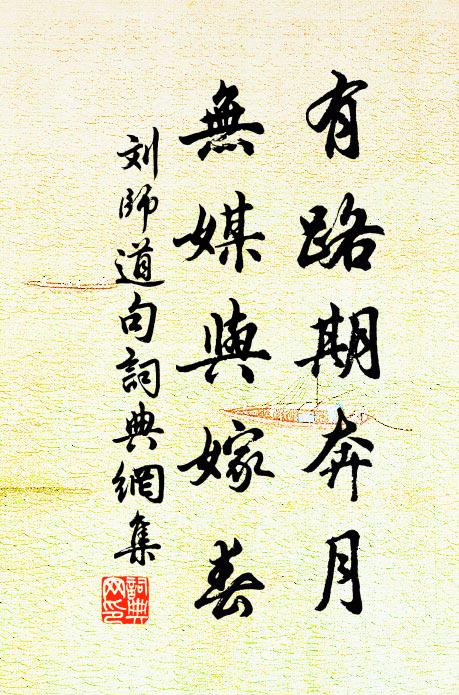 有路期奔月
無媒與嫁春
刘師道句詞典網集
詞典网印